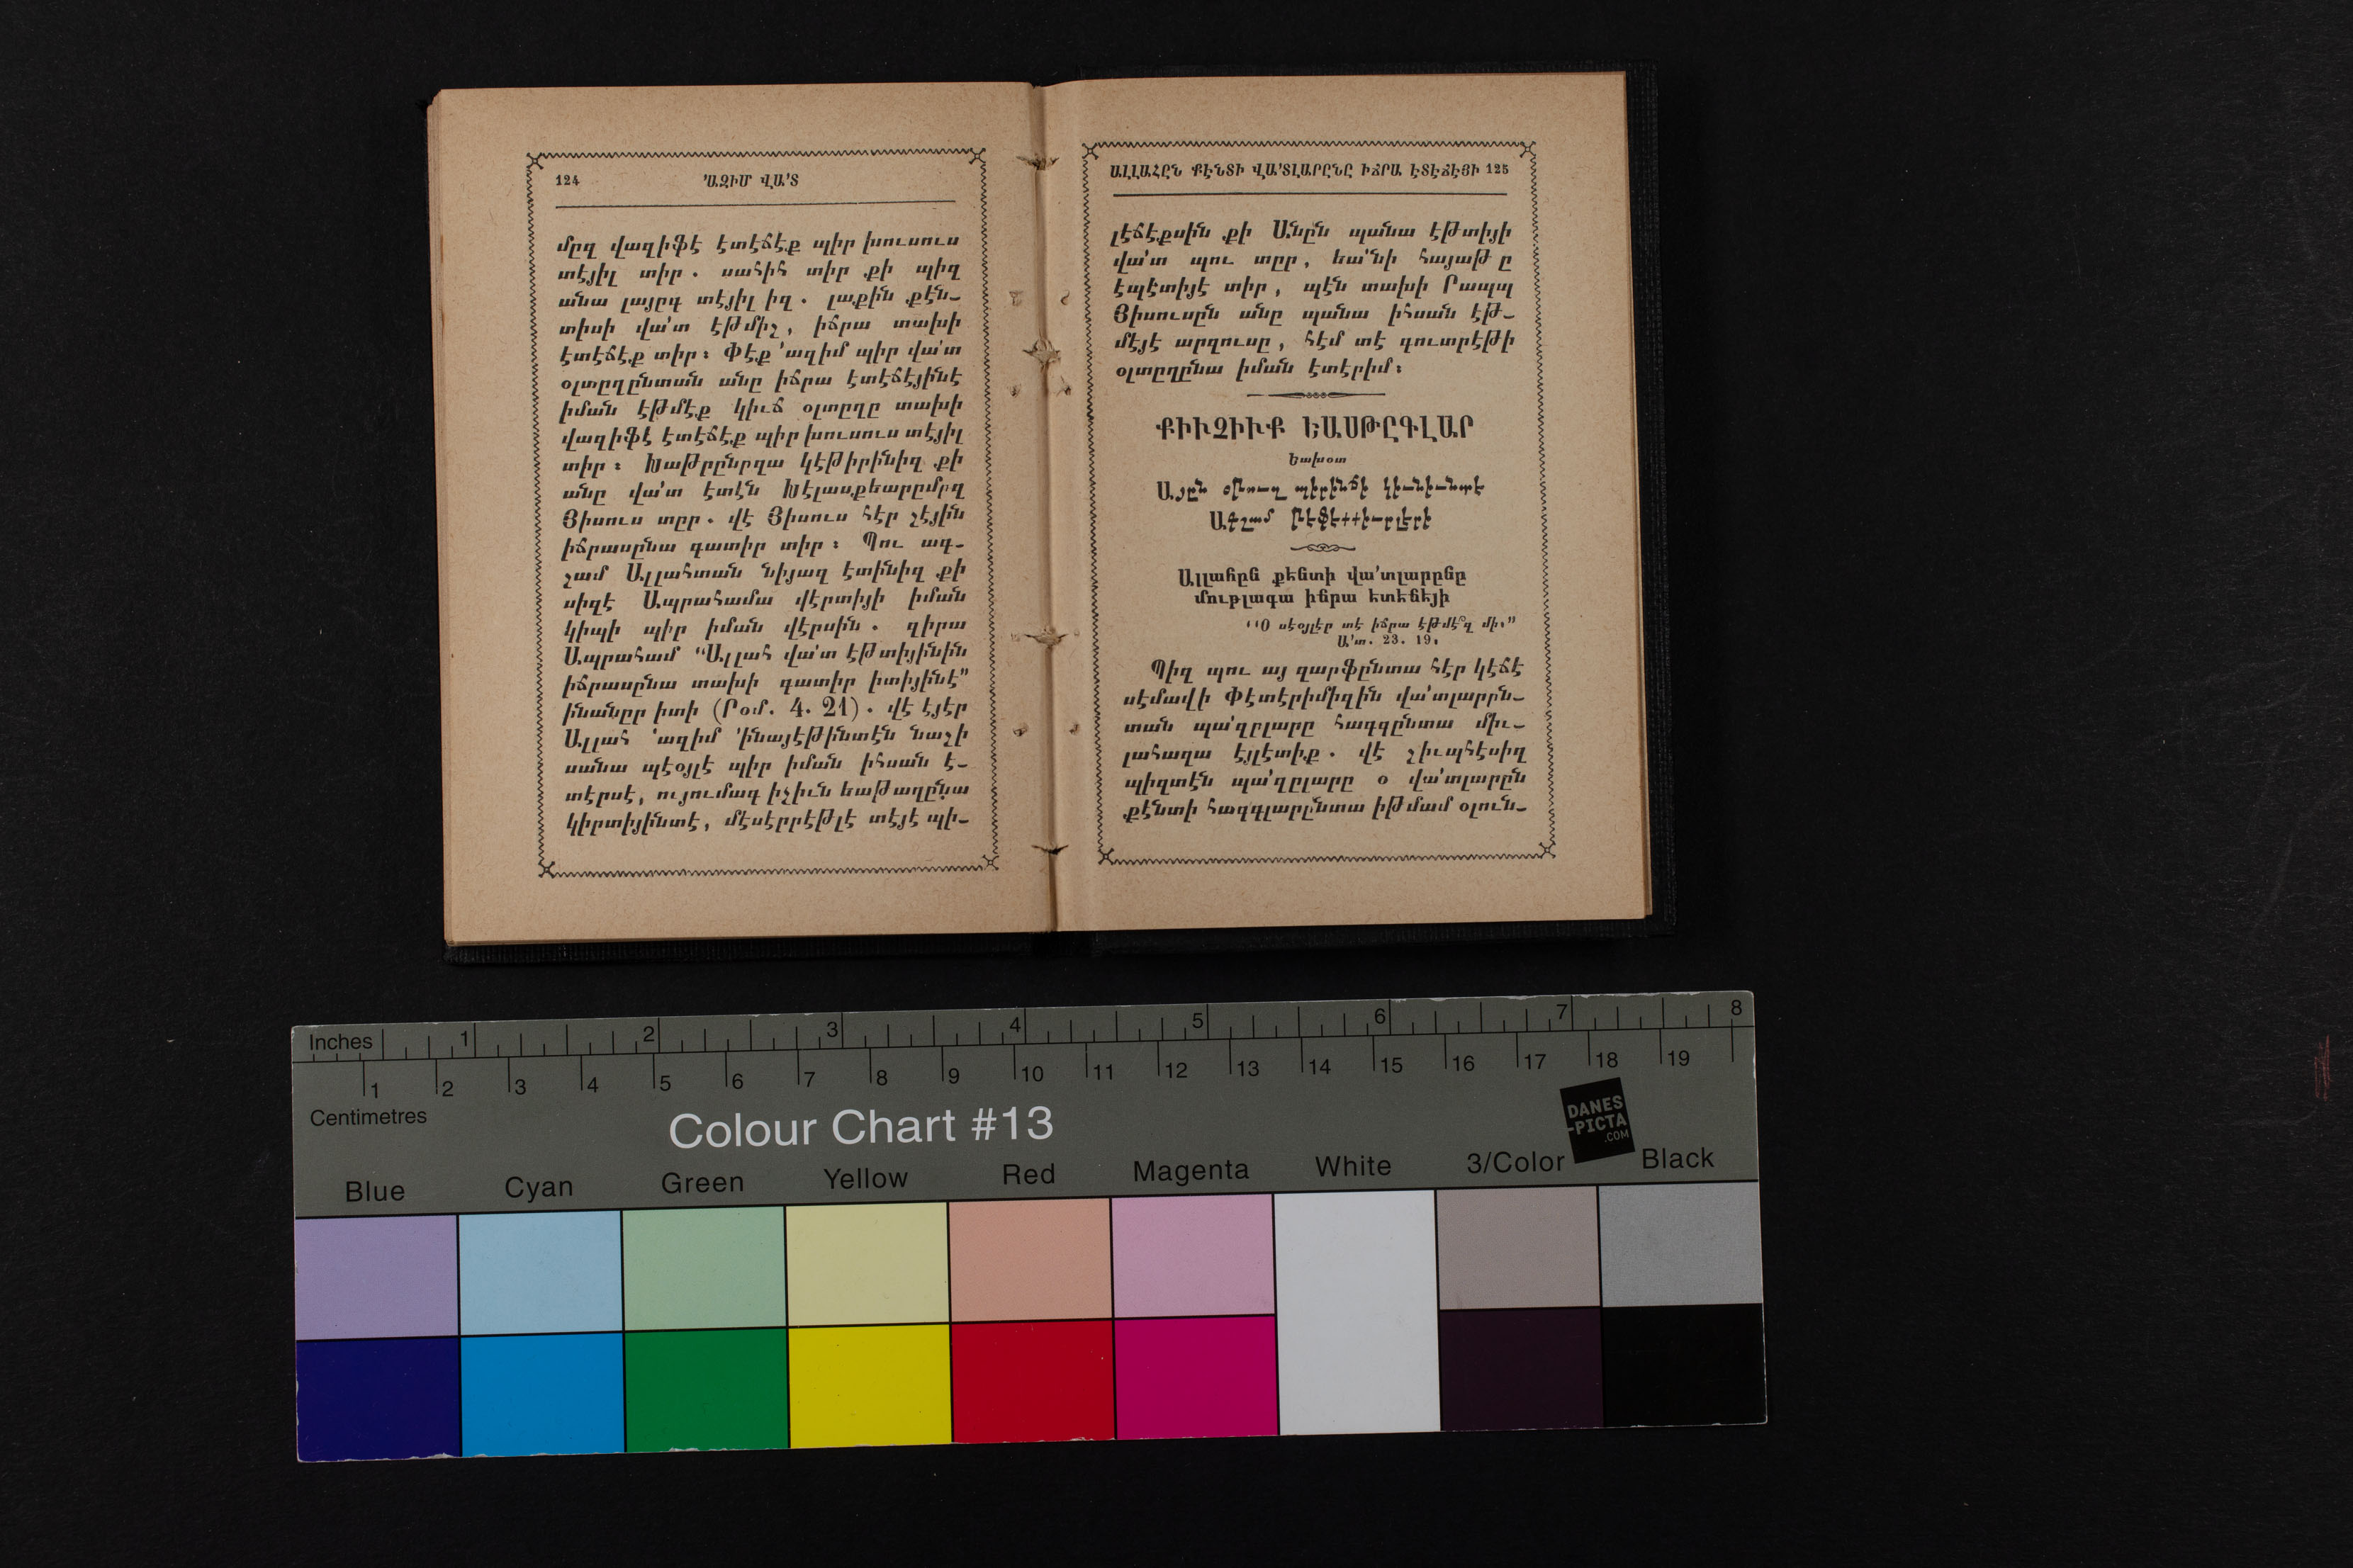 124 ՚ԱԶԻՄ ՎԱ՚Տ
մըզ վազիֆէ էտէճէք պիր խուսուս
տէյիլ տիր. սահիհ տիր քի պիզ
անա լայըգ տէյիլ իզ. լաքին քէն-
տիսի վա՚տ էթմիշ, իճրա տախի
էտէճէք տիր։ Փէք ՚ազիմ պիր վա՚տ
օլտըղընտան անը իճրա էտէճէյինէ
իման էթմէք կիւճ օլտըղը տախի
վազիֆէ էտէճէք պիր խուսուս տէյիլ
տիր։ Խաթրընըզա կէթիրինիզ քի
անը վա՚տ էտէն Խէլասքեարըմըզ
Յիսուս տըր. վէ Յիսուս հէր շէյին
իճրասընա գատիր տիր։ Պու ագ-
շամ Ալլահտան նիյազ էտինիզ քի
սիզէ Ապրահամա վէրտիյի իման
կիպի պիր իման վէրսին. զիրա
Ապրահամ “Ալլահ վա՚տ էթտիյինին
իճրասընա տախի գատիր իտիյինէ”
ինանըր իտի (Րօմ. 4. 21). վէ էյէր
Ալլահ ՚ազիմ ՚ինայէթինտէն նաշի
սանա պէօյլէ պիր իման իհսան է-
տէրսէ, ույումագ իչիւն եաթաղընա
կիրտիյինտէ, մէսէրրէթլէ տէյէ պի-
ԱԼԼԱՀԸՆ ՔԷՆՏԻ ՎԱ՚ՏԼԱՐԸՆԸ ԻՃՐԱ ԷՏԷՃԷՅԻ 125
լէճէքսին քի Անըն պանա էթտիյի
վա՚տ պու տըր, եա՚նի հայաթ ը
էպէտիյէ տիր, պէն տախի Րապպ
Յիսուսըն անը պանա իհսան էթ-
մէյէ արզուսը, հէմ տէ գուտրէթի
օլտըղընա իման էտէրիմ։
ՔԻՒՉԻՒՔ ԵԱՍԹԸԳԼԱՐ
Եախօտ
Այըն օթուզ պիրինճի կիւնիւնտէ
Ագշամ թէֆէքքիւրլէրի
Ալլահըն քենտի վա՚տլարընը
մութլագա իճրա ետեճեյի
“Օ սէօյլէր տէ իճրա էթմէ՞զ մի։”
Ա՚տ. 23. 19։
Պիզ պու այ զարֆընտա հէր կէճէ
սէմավի Փէտէրիմիզին վա՚տլարըն-
տան պա՚զըլարը հագգընտա միւ-
լահազա էյլէտիք. վէ շիւպհէսիզ
պիզտէն պա՚զըլարը օ վա՚տլարըն
քէնտի հագգլարընտա իթմամ օլուն-
Inches 1 2 3 4 5 6 7 8
1 2 3 4 5 6 7 8 9 10 11 12 13 14 15 16 17 18 19
Centimetres
Colour Chart #13
DANES
-PICTA
.COM
Blue Cyan Green Yellow Red Magenta White 3/Color Black